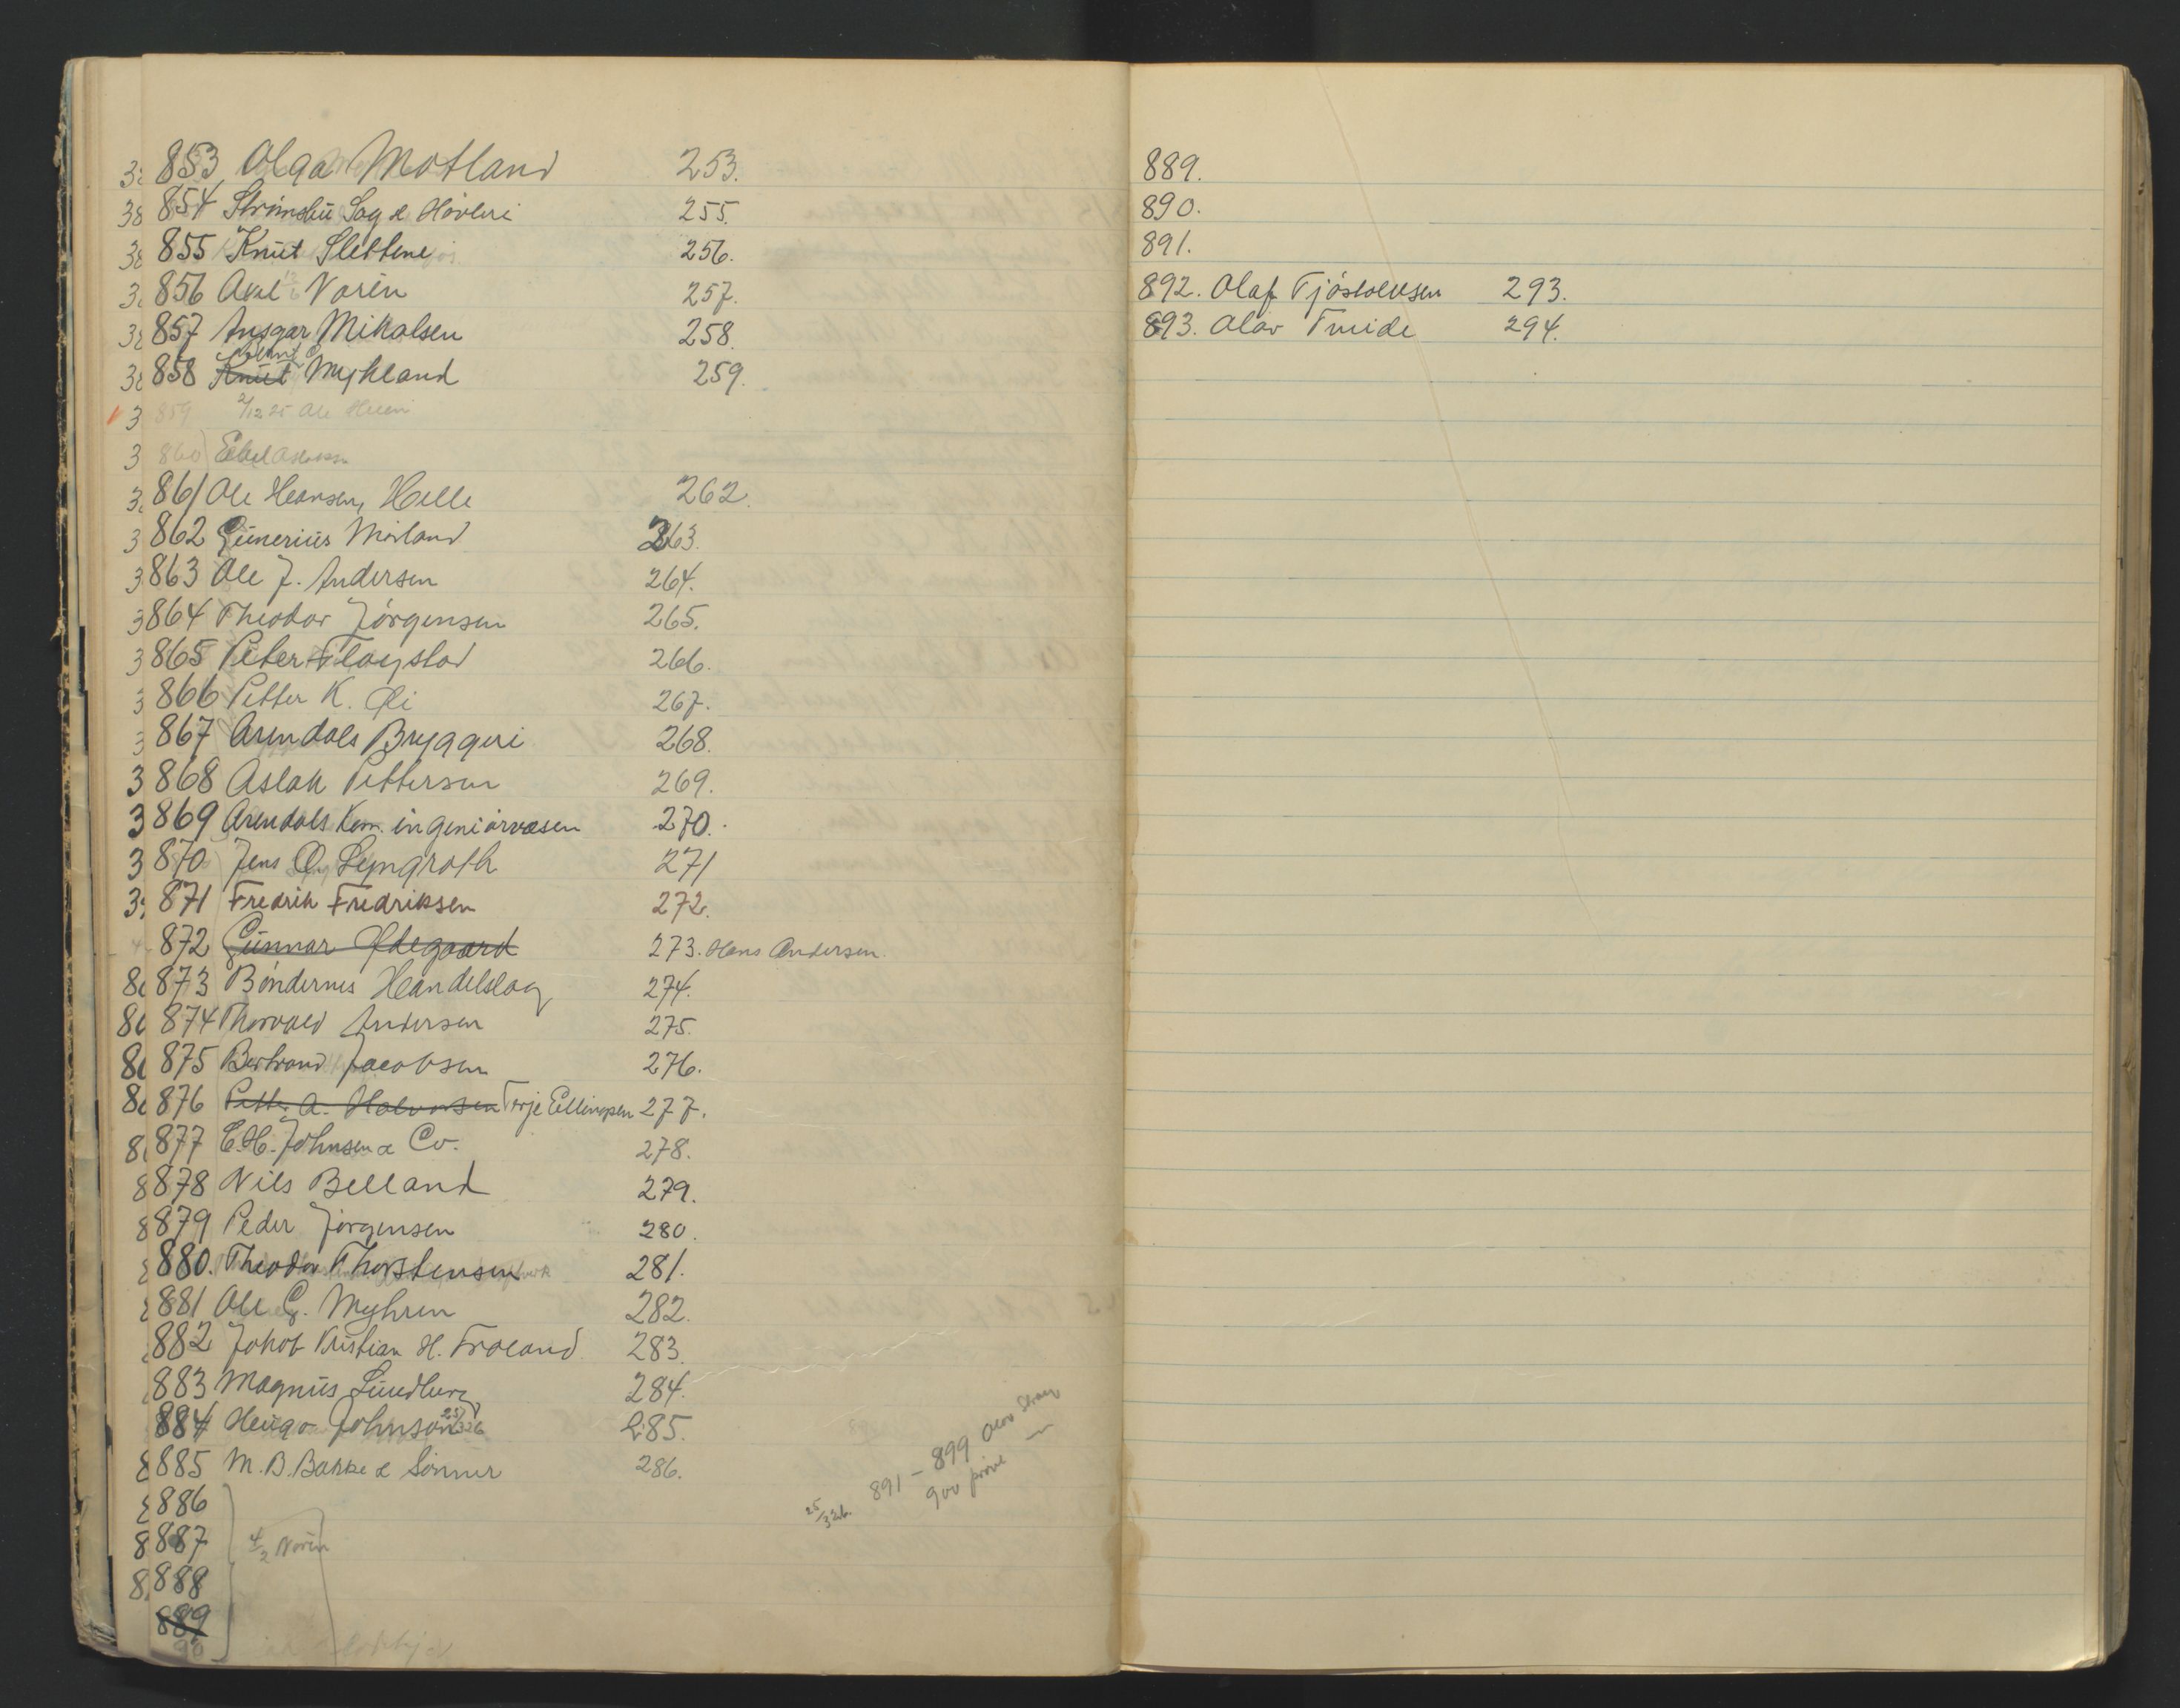 853 Olga Motland 253.
854 Strömsbu Sag & Hövleri 255.
855 Knut Slettene 256.
856 Axel Norin 257.
857 Ansgar Mikalsen 258.
858 Knut Myhland 259.
859 2/12 25 Ole
860
861 Ole Hansen, Helle 262.
862 Gunerius Mörland 263.
863 Ole J. Andersen 264.
864 Theodor Jörgensen 265.
865 Peter Flaystad 266.
866 Petter K. 267.
867 Arendals Bryggeri 268.
868 Aslak Pettersen 269.
869 Arendals Kom. ingeniörvæsen 270.
870 Jens O. Lyngroth 271
871 Fredrik Fredriksen 272.
872 Gunnar Ødegaard 273. Hans Andersen.
873 Böndernes Handelslag 274.
874 Thorvald Andersen 275.
875 Bertrand Jacobsen 276.
876 Petter A. Halvorsen Terje Ellingsen 277.
877 E.H. Johnsen & Co. 278.
878 Nils Belland 279.
879 Peder Jörgensen 280.
880. Theodor Thorstensen 281.
881 Ole G. Myhren 282.
882 Jakob Kristian H. Froland 283.
883 Magnus Lundberg 284.
884 Hugo Johnson 25/3 26 285.
885 M. B. Bakke & Sönner 286.
886
887 4/2 Norin
888
889
90
25/3 26. 891 – 899 Olav
900 prövet
889.
890.
891.
892. Olaf Tjöstolvsen 293.
893. Olav Tveide 294.